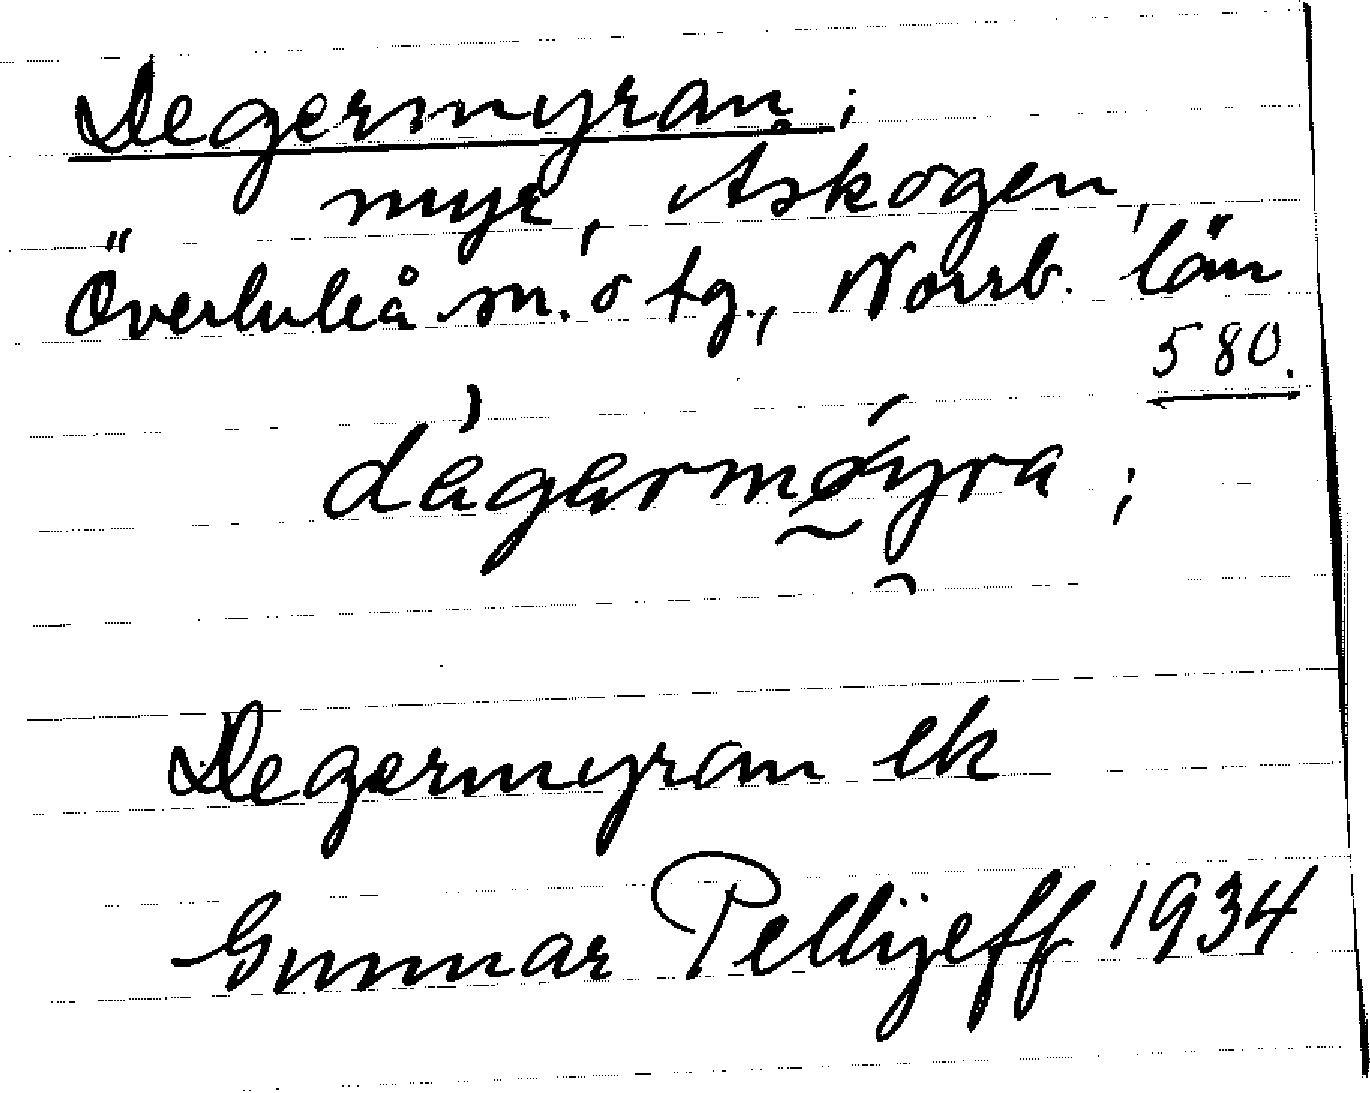 Degermyran;
myr, Åskogen,
Överluleå sn. o tg., Norrb. län
580.
dägärmøyra;
Degermyran ek
Gunnar Pellijeff 1934